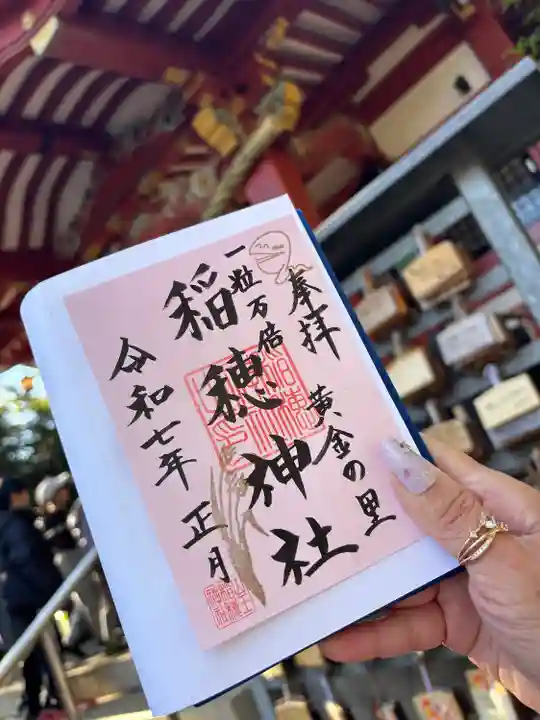 奉拝
黄金の里
一粒万倍
稲穂神社
令和七年
正月